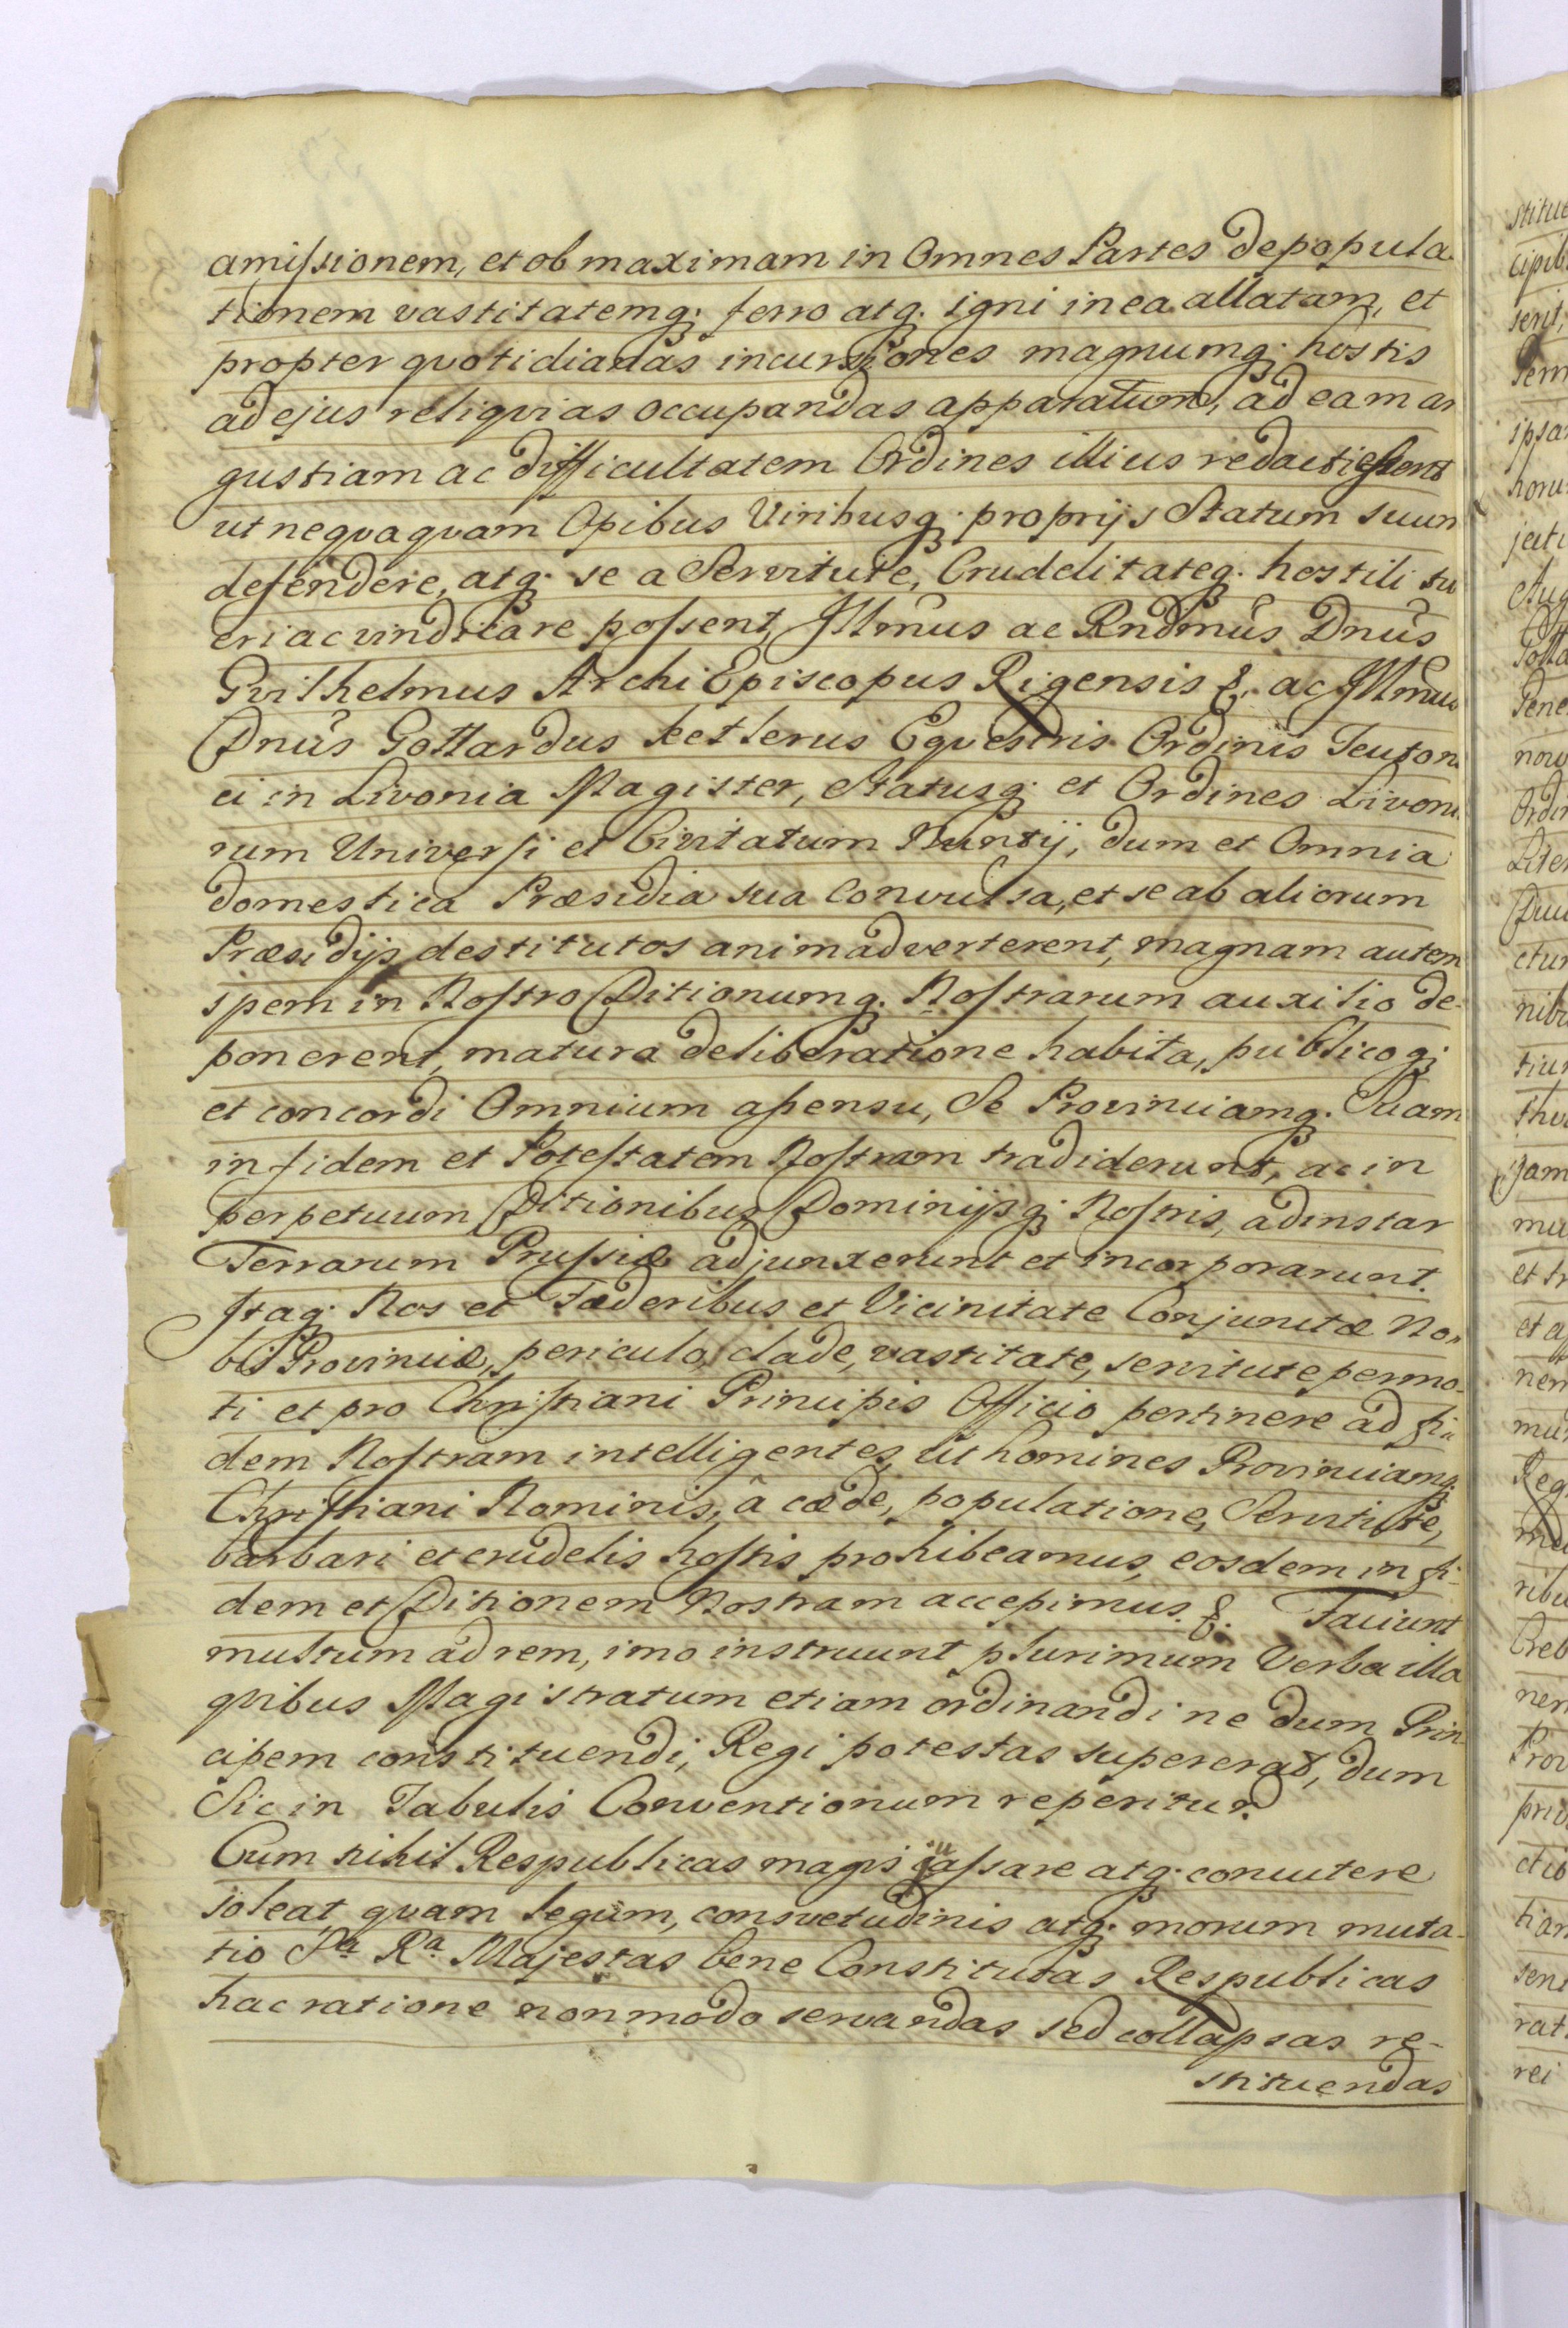 amissionem, et ob maximam in Omnes Partes depopula-
tionem vastitatemq; ferro atq; igni in ea allatam, et
propter quotidianas incursiones magnumq; hostis
ad ejus reliqvias occupandas apparatum, ad eam an
gustiam ac difficultatem Ordines illius redacti essent
ut neqvaqvam Opibus Viribusq; proprijs Statum suum
defendere, atq; se a Servitute, Crudelitateq; hostili tu
eri ac vindicare possent, Illmus ac Rndmus Dnus
Gvilhelmus ArchiEpiscopus Rigensis &. ac Illmus
Dnus Gottardus Ketlerus Eqvestris Ordinis Teutoni
ci in Livonia Magister, Statusq; et Ordines Livoni
rum Universi et Civitatum Nuntij, dum et Omnia
domestica Præsidia sua convulsa, et se ab aliorum
Præsidijs destitutos animadverterent, magnam autem
spem in Nostro Ditionumq; Nostrarum auxilio de-
ponerent, matura deliberatione habita, publicoq;
et concordi Omnium assensu, Se Provinciamq; Suam
in fidem et Potestatem Nostram tradiderunt, ac in
perpetuum Ditionibus Dominijsq; Nostris, ad instar
Terrarum Prussiæ adjunxerunt et incorporarunt.
Itaq; Nos et Fæderibus et Vicinitate Conjunctæ No-
bis Provinciæ, periculo, clade, vastitate, servitute permo-
ti et pro Christiani Principis Officio pertinere ad fi-
dem Nostram intelligentes, ut homines Provinciamq;
Christiani Nominis, â cæde, populatione, Servitute,
barbari et crudelis hostis prohibeamus, eosdem in fi-
dem et Ditionem Nostram accepimus. &. Faciunt
multum ad rem, imo instruunt plurimum Verba illa
qvibus Magistratum etiam ordinandi ne dum Prin
cipem constituendi, Regi potestas supererat, dum
Sic in Tabulis Conventionum reperitur.
Cum nihil Respublicas magis quassare atq; concutere
soleat, qvam legum, consvetudinis atq; morum muta-
tio Sa Ra Majestas bene Constitutas Respublicas
hac ratione non modo servandas sed collapsas re-
stituendas